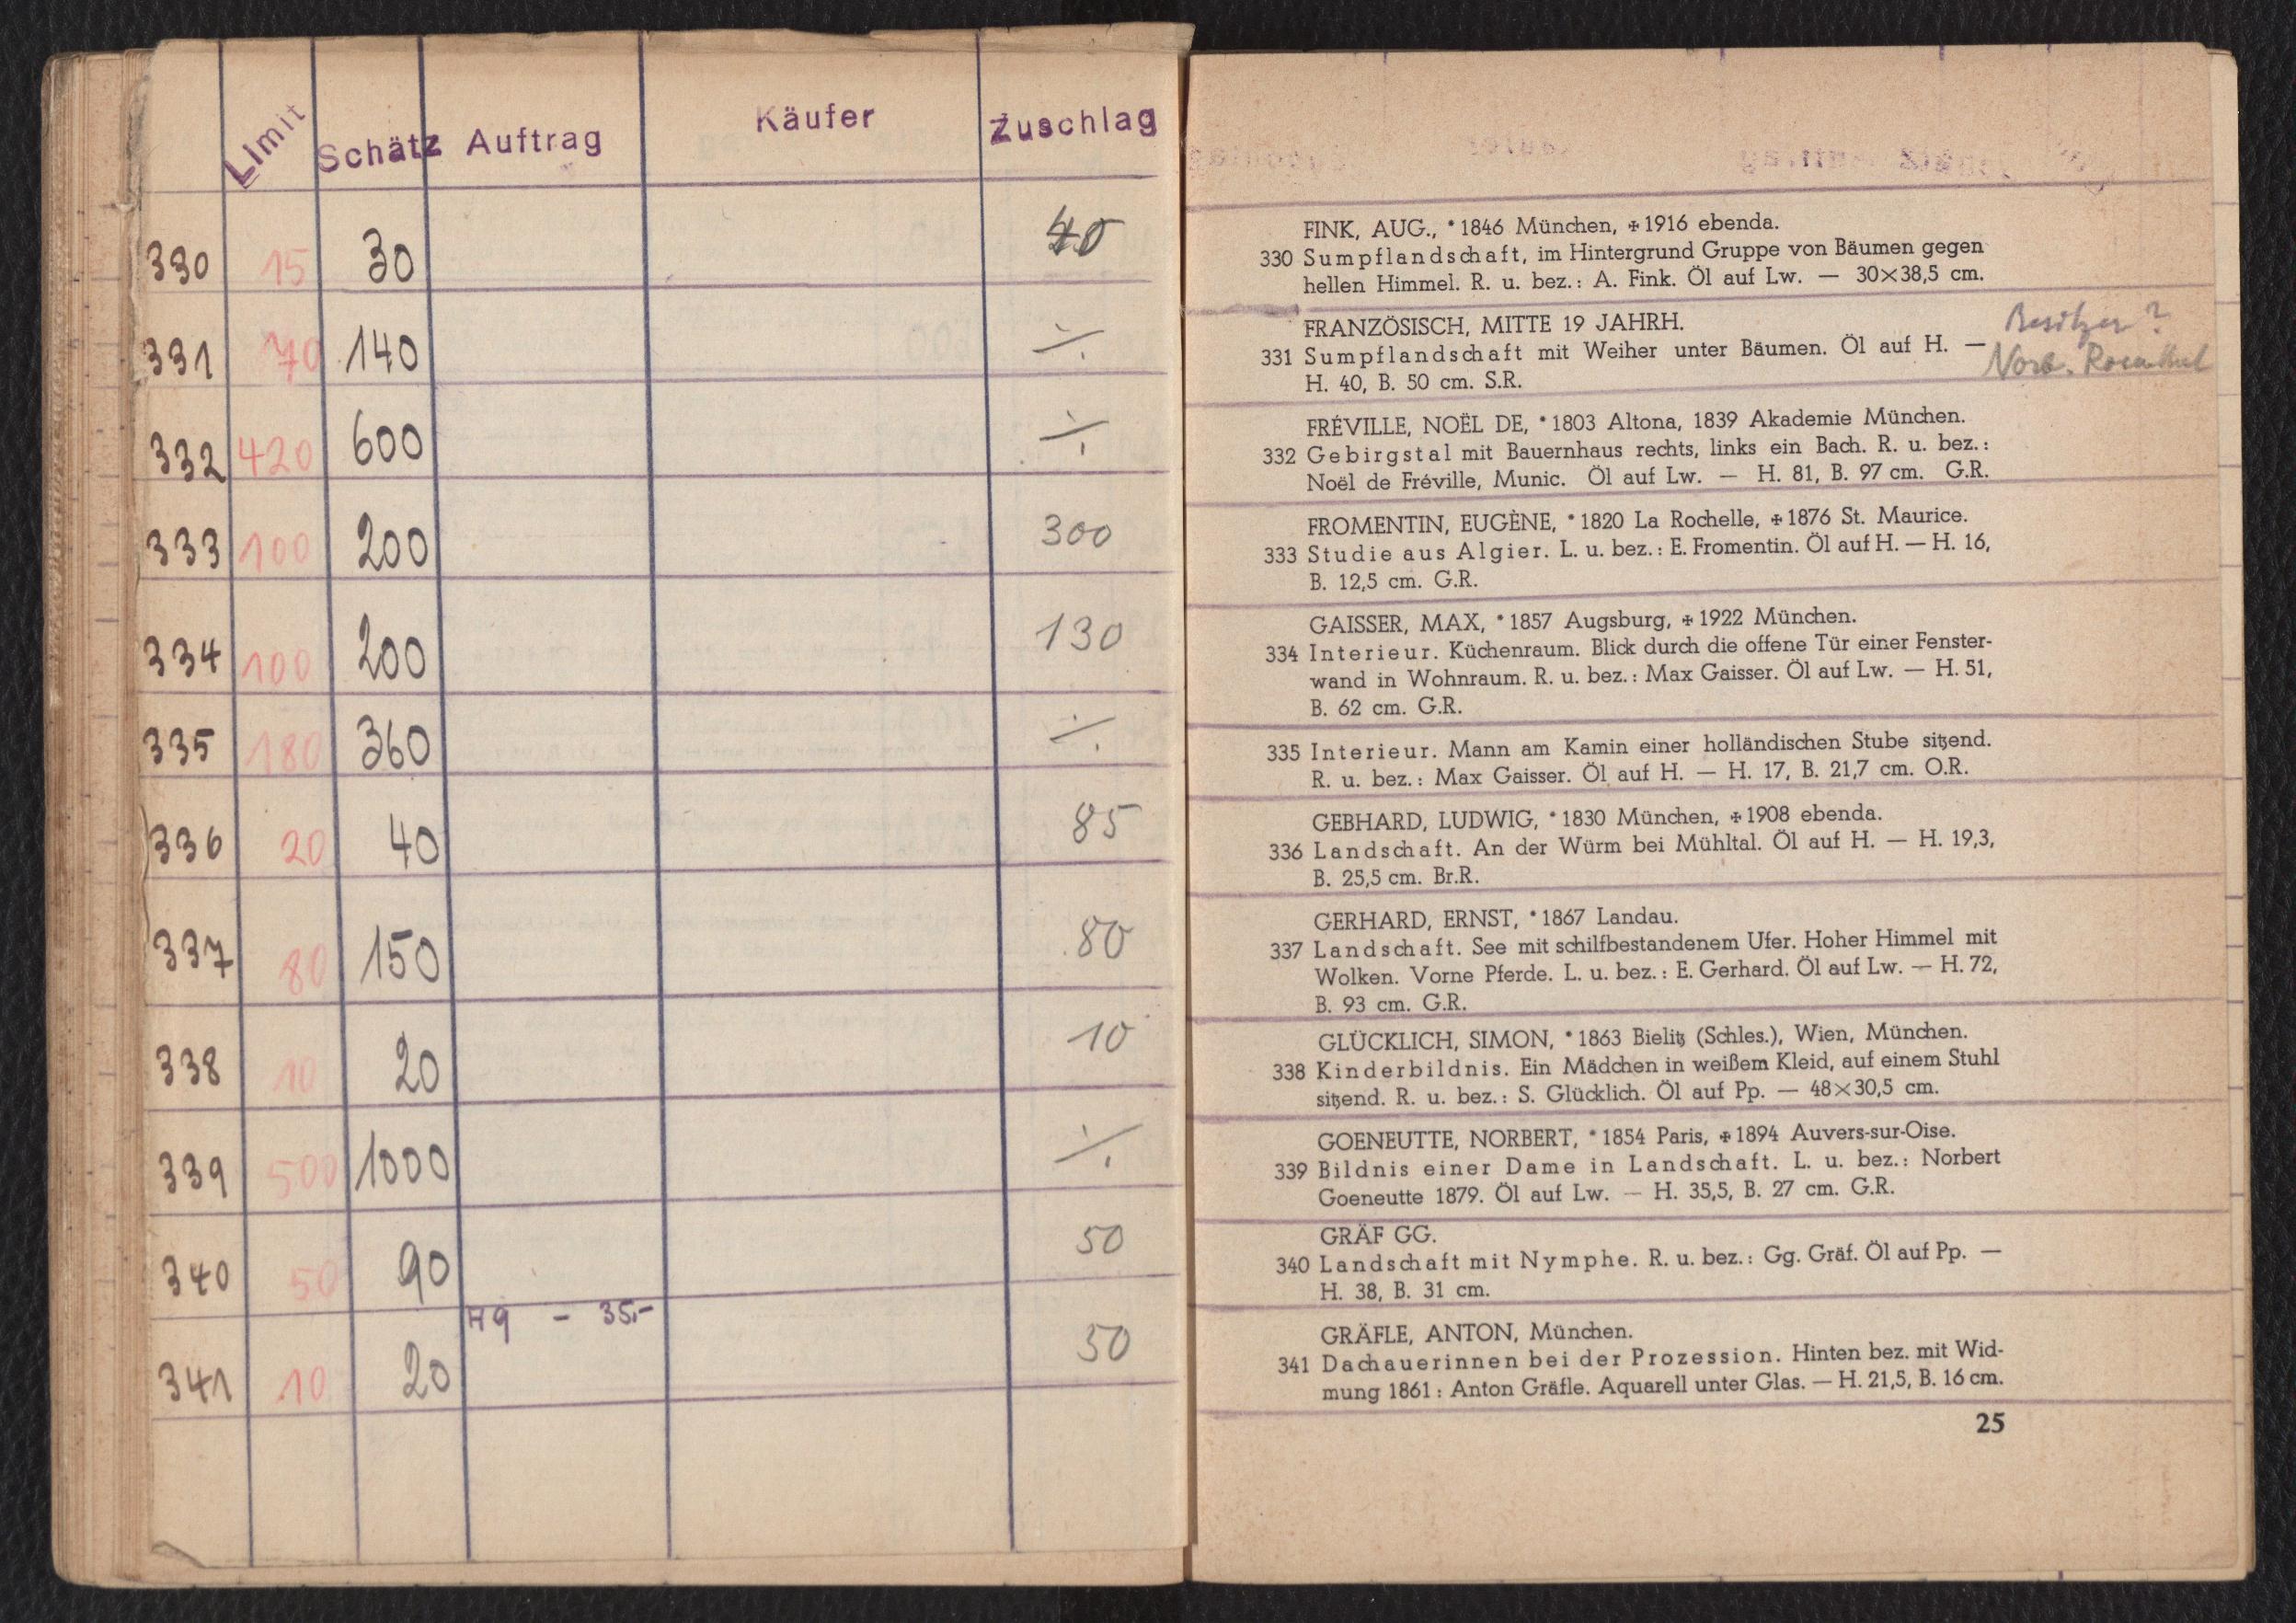 Limit Schätz Auftrag Käufer Zuschlag
330 15 30 40
331 70 140 ./.
332 420 600 ./.
333 100 200 300
334 100 200 130
335 180 360 ./.
336 20 40 85
337 80 150 80
338 10 20 10
339 500 1000 ./.
340 50 90 50
- 35.-
341 10 20 50
FINK, AUG., *1846 München, ✠1916 ebenda.
330 Sumpflandschaft, im Hintergrund Gruppe von Bäumen gegen
hellen Himmel. R. u. bez.: A. Fink. Öl auf Lw. — 30×38,5 cm.
FRANZÖSISCH, MITTE 19 JAHRH.
331 Sumpflandschaft mit Weiher unter Bäumen. Öl auf H. —
H. 40, B. 50 cm. S.R.
Besitzer?
Norb. Rosenthal
FRÉVILLE, NOËL DE, *1803 Altona, 1839 Akademie München.
332 Gebirgstal mit Bauernhaus rechts, links ein Bach. R. u. bez.:
Noël de Fréville, Munic. Öl auf Lw. — H. 81, B. 97 cm. G.R.
FROMENTIN, EUGÈNE, *1820 La Rochelle, ✠1876 St. Maurice.
333 Studie aus Algier. L. u. bez.: E. Fromentin. Öl auf H. — H. 16,
B. 12,5 cm. G.R.
GAISSER, MAX, *1857 Augsburg, ✠1922 München.
334 Interieur. Küchenraum. Blick durch die offene Tür einer Fenster-
wand in Wohnraum. R. u. bez.: Max Gaisser. Öl auf Lw. — H. 51,
B. 62 cm. G.R.
335 Interieur. Mann am Kamin einer holländischen Stube sitzend.
R. u. bez.: Max Gaisser. Öl auf H. — H. 17, B. 21,7 cm. O.R.
GEBHARD, LUDWIG, *1830 München, ✠1908 ebenda.
336 Landschaft. An der Würm bei Mühltal. Öl auf H. — H. 19,3,
B. 25,5 cm. Br.R.
GERHARD, ERNST, *1867 Landau.
337 Landschaft. See mit schilfbestandenem Ufer. Hoher Himmel mit
Wolken. Vorne Pferde. L. u. bez.: E. Gerhard. Öl auf Lw. — H. 72,
B. 93 cm. G.R.
GLÜCKLICH, SIMON, *1863 Bielitz (Schles.), Wien, München.
338 Kinderbildnis. Ein Mädchen in weißem Kleid, auf einem Stuhl
sitzend. R. u. bez.: S. Glücklich. Öl auf Pp. — 48×30,5 cm.
GOENEUTTE, NORBERT, *1854 Paris, ✠1894 Auvers-sur-Oise.
339 Bildnis einer Dame in Landschaft. L. u. bez.: Norbert
Goeneutte 1879. Öl auf Lw. — H. 35,5, B. 27 cm. G.R.
GRÄF GG.
340 Landschaft mit Nymphe. R. u. bez.: Gg. Gräf. Öl auf Pp. —
H. 38, B. 31 cm.
GRÄFLE, ANTON, München.
341 Dachauerinnen bei der Prozession. Hinten bez. mit Wid-
mung 1861: Anton Gräfle. Aquarell unter Glas. — H. 21,5, B. 16 cm.
25